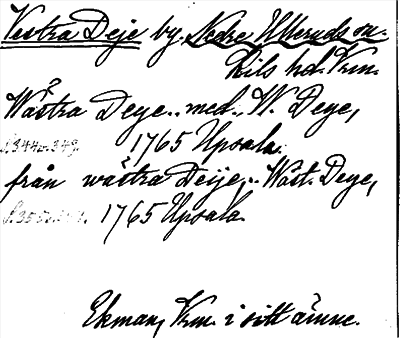 Vestra Deje by. Nedre Ulleruds sn.
Kils hd. Vrm.
Wästra Deye.. med., W. Deye,
S. 344 o. 349. 1765 Upsala.
från wästra Deije,.. Wäst. Deye,
1765 Upsala.
Ekman, Vrm. i sitt ämne.